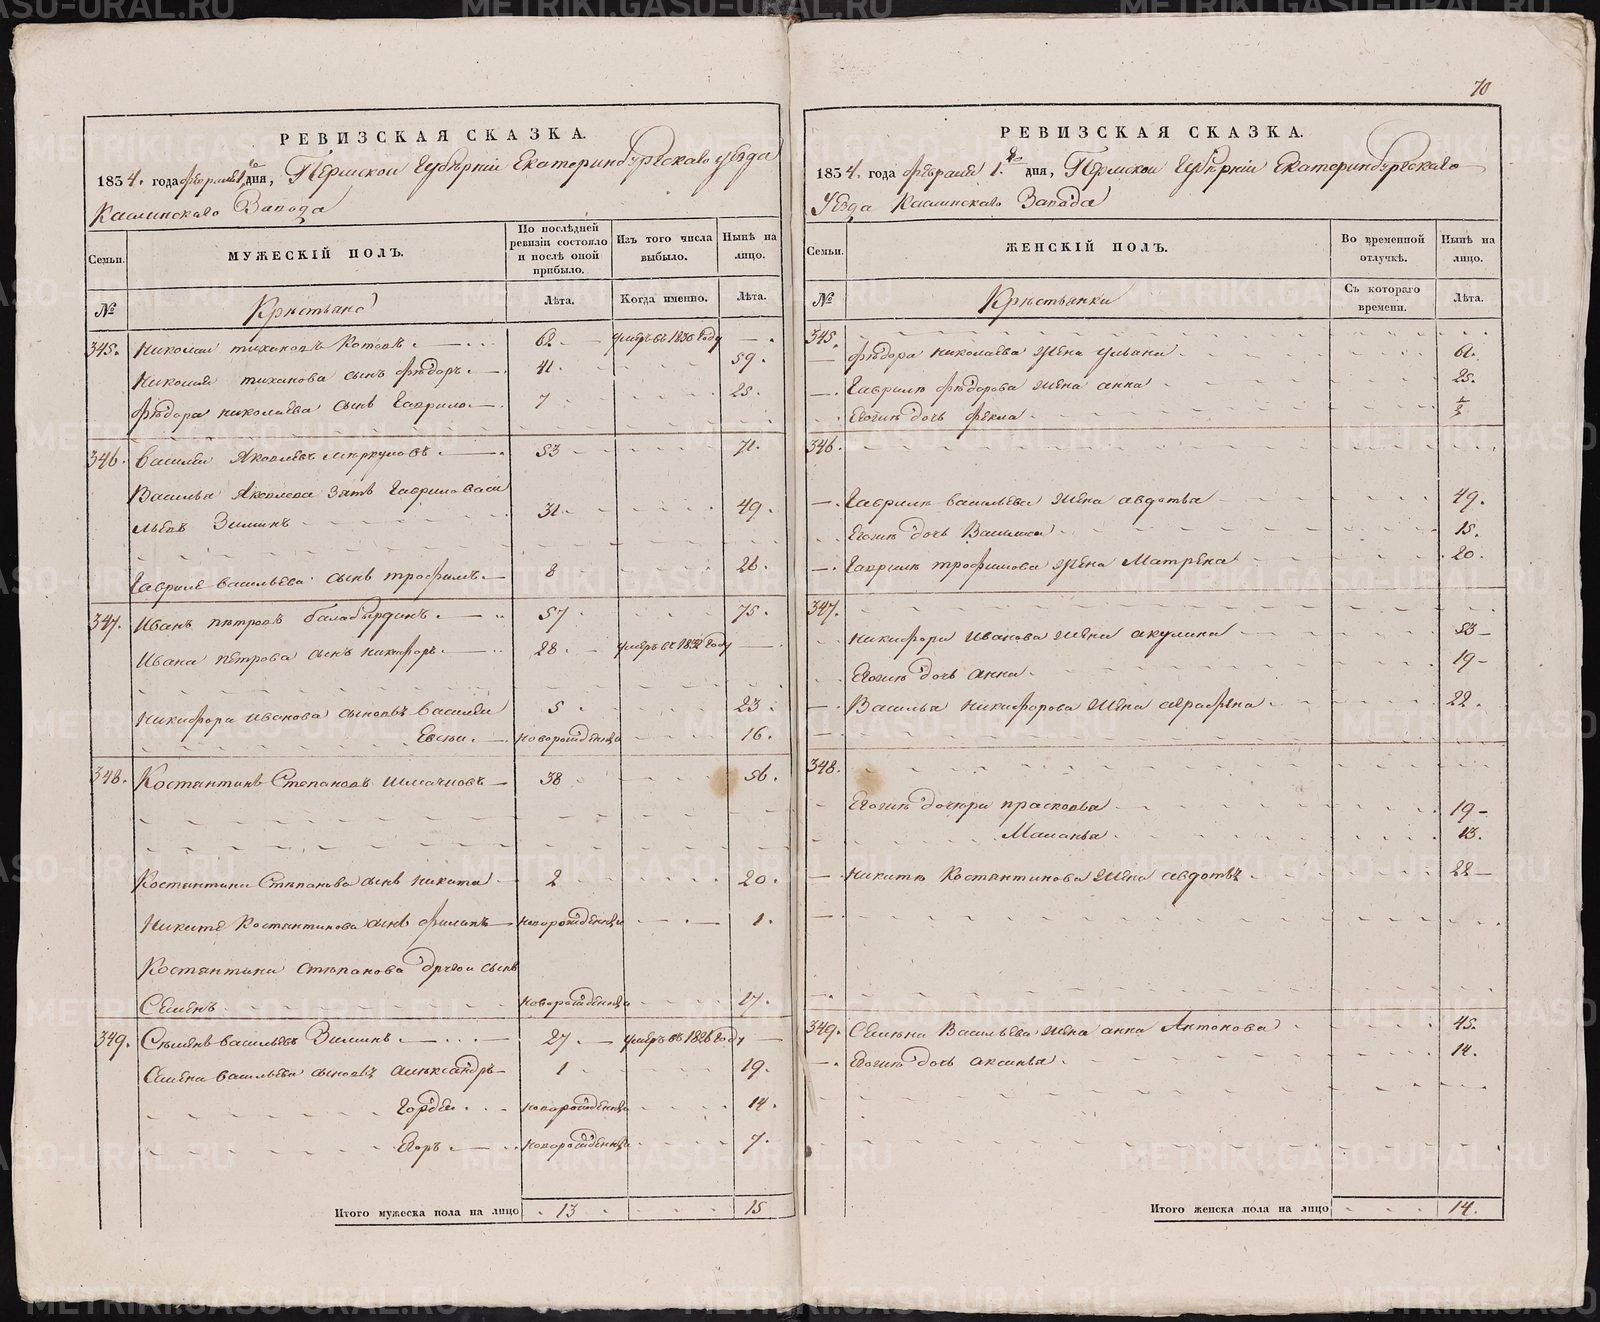 70
РЕВИЗСКАЯ СКАЗКА.
1834. года февраля 1го дня, Пермской Губернии Екатеринбургскаго уезда
Каслинскаго Завода
Семьи. МУЖЕСКІЙ ПОЛЪ. По послѣдней ревизіи состояло и послѣ оной прибыло. Изъ того числа выбыло. Нынѣ на лицо.
№ Крестьяне Лѣта. Когда именно. Лѣта.
345. Николай тихановъ Котовъ 62. умеръ въ 1830 году
Николая тиханова сынъ федоръ 41. 59.
федора николаева сынъ Гаврило 7 25.
346. Василей Яковлевъ меркуловъ 53 71.
Василья Яковлева зять Гаврило Васи
льевъ Зиминъ 31 49.
Гаврилы васильева сынъ трофимъ 8 26.
347. Иванъ петровъ балабурдинъ 57 75.
Ивана петрова сынъ никифоръ 28 умеръ въ 1832 году
никифора иванова сыновья василей 5 23.
Евсей новорожденны 16.
348. Костантинъ Степановъ 38 56.
Костантина Степанова сынъ никита 2 20.
Никиты Костантинова сынъ филипъ новорожденны 1.
Костантина степанова другой сынъ
Семенъ новорожденны 17.
349. Семенъ васильевъ Зиминъ 27 умеръ въ 1826 году
Семена васильева сыновья александръ 1 19.
Гордей новорожденны 14
Егоръ новорожденны 7.
Итого мужеска пола на лицо 13 15
РЕВИЗСКАЯ СКАЗКА.
1834. года февраля 1.го дня, Пермской Губерніи Екатеринбургскаго
Уезда Каслинскаго Завода
Семьи. ЖЕНСКІЙ ПОЛЪ. Во временной отлучкѣ. Нынѣ на лицо.
№ Крестьянки Съ котораго времени. Лѣта.
345.
федора николаева жена ульяна 61.
Гаврилы федорова жена анна 25.
Егожъ дочь фекла 1/2
346.
Гаврилы васильева жена авдотья 49.
Егожъ дочь Василиса 15.
Гаврилы трофимова жена Матрена 20.
347.
никифора Иванова жена акулина 53
Егожъ дочь анна 19
Василья никифорова жена аграфена 22.
348.
Егожъ дочери прасковья 19
Маланья 13.
никиты Костантинова жена авдотья 22
349. Семена Васильева жена анна Антонова 45.
Егожъ дочь аксинья 14.
Итого женска пола на лицо 14.
METRIKI.GASO-URAL.RU